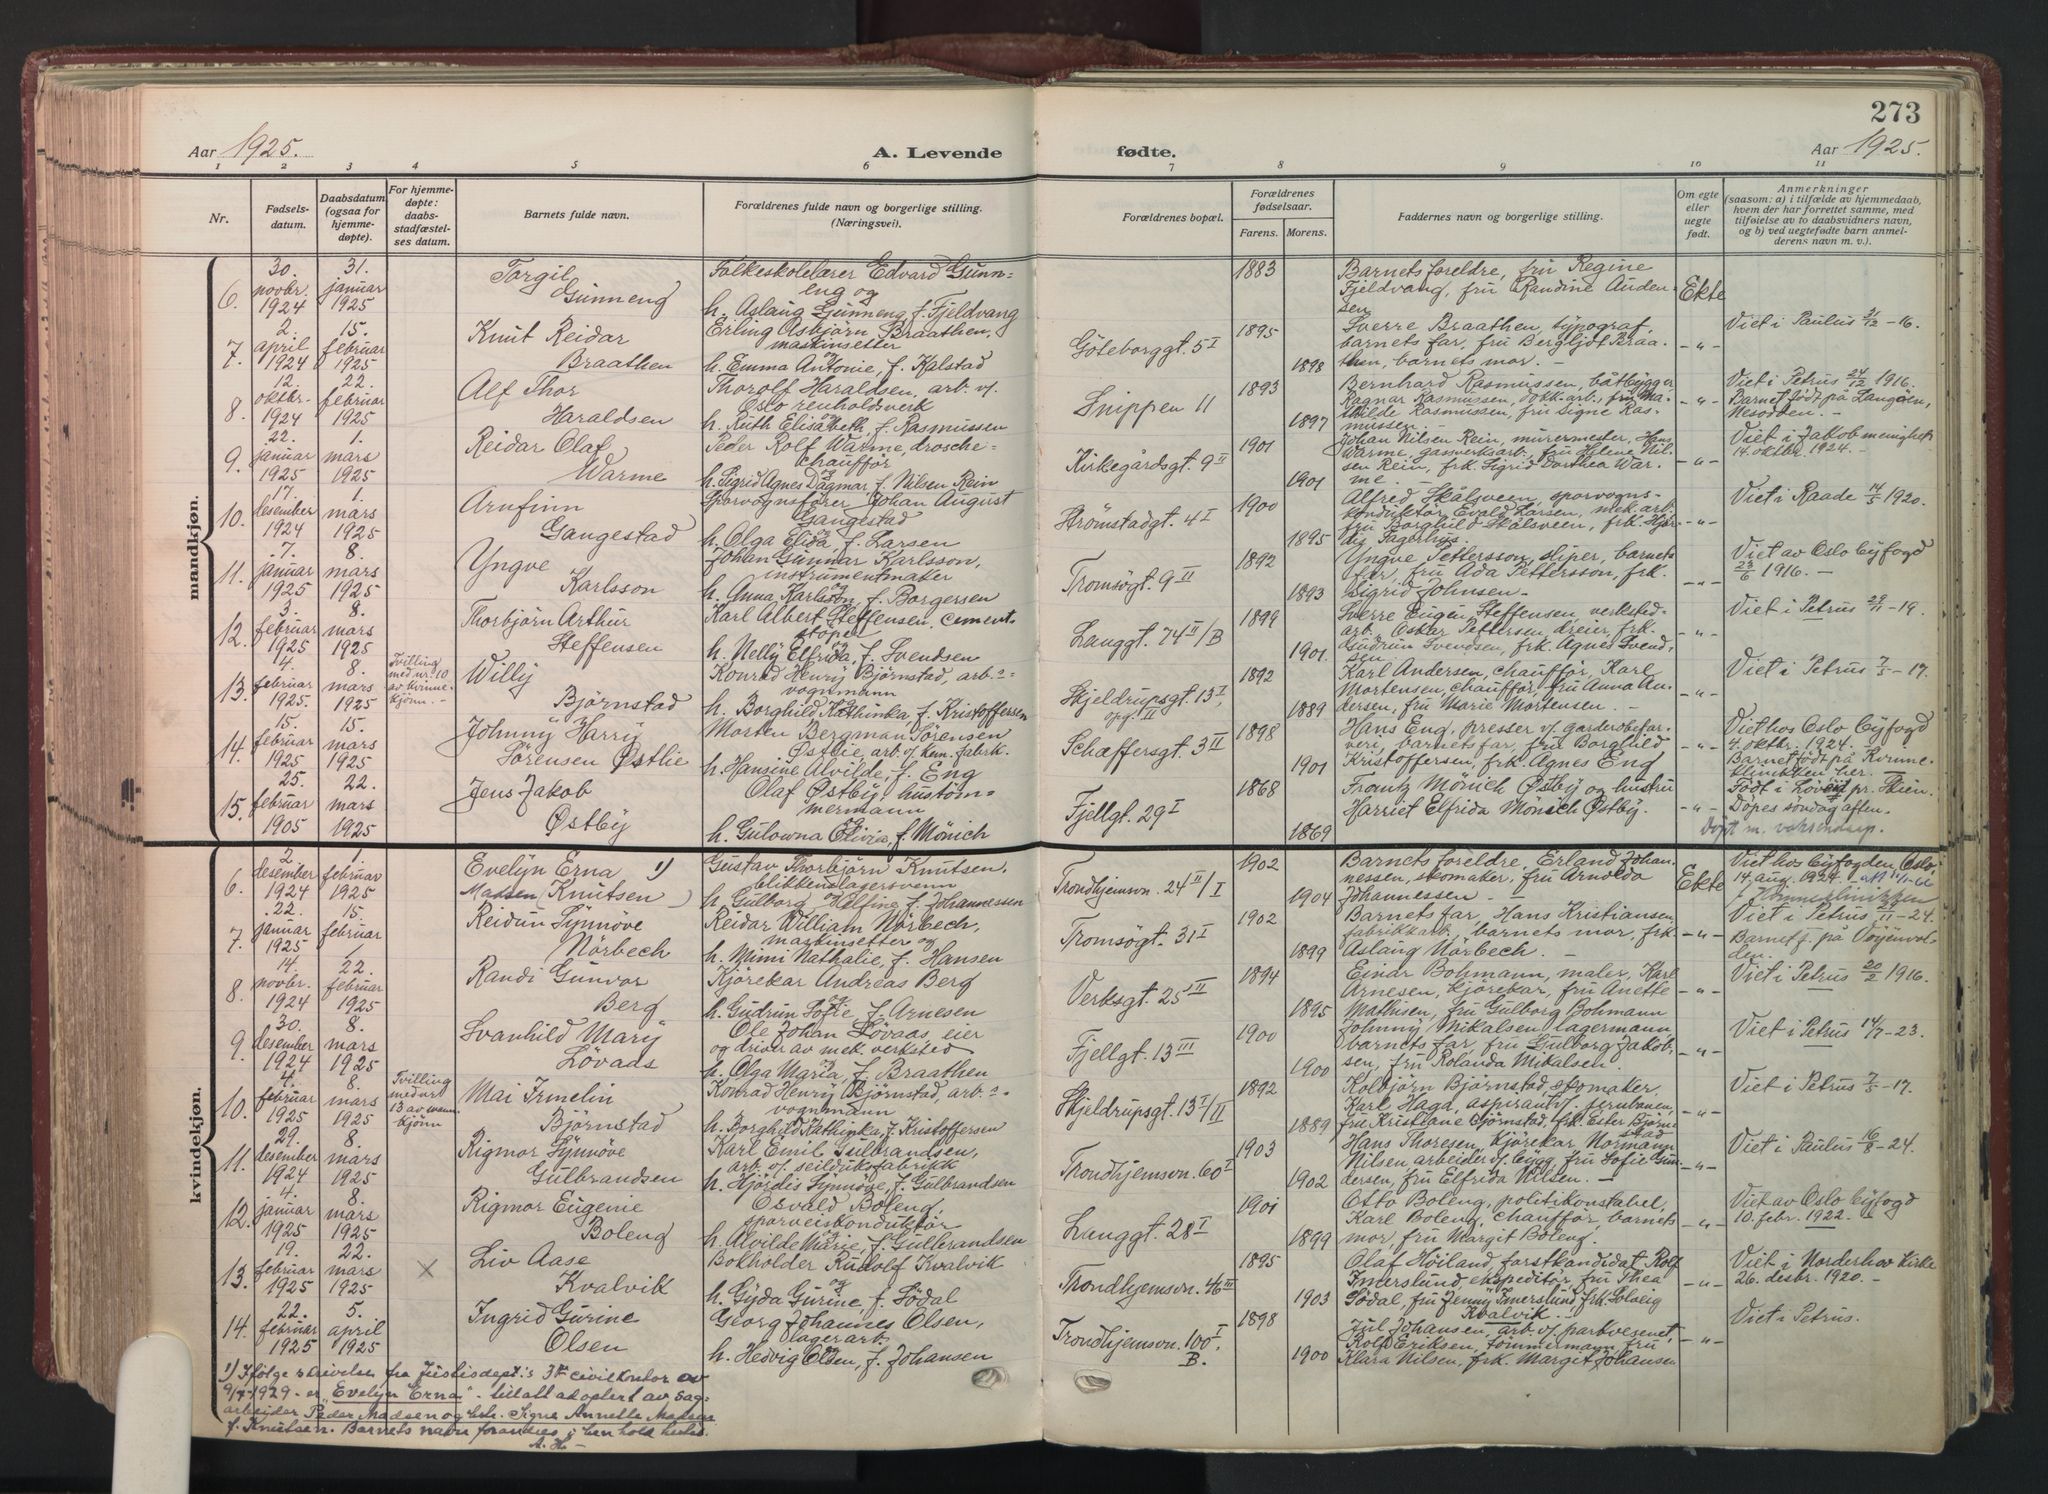 273
Aar 1925. A. Levende fødte. Aar 1925.
1 2 3 4 5 6 7 8 9 10 11
Nr.
Fødsels-
datum.
Daabsdatum
(ogsaa for
hjemme-
døpte).
For hjemme-
døpte:
daabs-
stadfæstel-
ses datum.
Barnets fulde navn.
Forældrenes fulde navn og borgerlige stilling.
(Næringsvei).
Forældrenes bopæl.
Forældrenes
fødselsaar.
Farens. Morens.
Faddernes navn og borgerlige stilling.
Om egte
eller
uegte
født.
Anmerkninger
(saasom: a) i tilfælde av hjemmedaab,
hvem der har forrettet samme, med
tilføielse av to daabsvidners navn,
og b) ved uegtefødte barn anmel-
derens navn m. v.).
mandkjøn.
6.
30.
novbr.
1924
31.
januar
1925
Torgil
Gunneng
Folkeskolelærer Edvard Gunn-
eng og
h. Aslaug Gunneng f. Fjeldvang
1883
Barnets foreldre, fru Regine
Fjeldvang, fru Randine Auden-
sen
Ekte
7.
2.
april
1924
15.
februar
1925
Knut Reidar
Braathen
Erling Asbjörn Braathen,
maskinsetter og
h. Emma Antonie, f. Kalstad
Göteborggt. 5 I
1895
1898
Sverre Braathen, typograf,
barnets far, fru Bergljot Braa-
then, barnets mor. -
-"-
Viet i Paulus 31/12 - 16.
8.
12.
oktbr.
1924
22.
februar
1925
Alf Thor
Haraldsen
Thorolf Haraldsen, arb. v/
Oslo renholdsverk og
h. Ruth Elisabeth, f. Rasmussen
Snippen 11
1893
1897
Bernhard Rasmussen, båtbygger
Ragnar Rasmussen, dokkarb., fru Ma-
thilde Rasmussen, fru Signe Ras-
mussen. -
-"-
Viet i Petrus 24/12 1916.
Barnet födt på Langöen,
Nesodden. -
9.
22.
januar
1925
1.
mars
1925
Reidar Olaf
Warme
Peder Rolf Warme, drosche-
chaufför og
h. Sigrid Agnes Dagmar, f. Nilsen Rein
Kirkegårdsgt. 9 II
1901
1901
Johan Nilsen Rein, murermester, Hans
Warme, gassverksarb., fru Helene Nil-
sen Rein, frk. Sigrid Dorthea War-
me. -
-"-
Viet i Jakob menighet
14. oktbr. 1924. -
10.
17.
desember
1924
1.
mars
1925
Arnfinn
Gangestad
Sporvognsförer Johan August
Gangestad og
h. Olga Elida, f. Larsen
Strömstadgt. 4 I
1900
1895
Alfred Skålsveen, sporvogns-
konduktör, Evald Larsen, mek. arb.
fru Borghild Skålsveen, frk. Hjör-
dis Fagerhus.
-"-
Viet i Raade 14/5 1920.
11.
7.
januar
1925
8.
mars
1925
Yngve
Karlsson
Johan Gunnar Karlsson,
instrumentmaker og
h. Anna Karlson, f. Borgersen
Tromsögt. 9 II
1892
1893
Yngve Pettersson, sliper, barnets
far, fru Ada Pettersson, frk.
Sigrid Johnsen -
-"-
Viet av Oslo Byfogd
23/6 1916. -
12.
3.
februar
1925
8.
mars
1925
Thorbjörn Arthur
Steffensen
Karl Albert Steffensen, cement-
stöper og
h. Nelly Elfrida, f. Svendsen
Langgt. 74 II/B
1899
1901.
Sverre Eugen Steffensen, verksted-
arb., Oskar Pettersen, dreier, frk.
Gudrun Svendsen, frk. Agnes Svend-
sen
-"-
Viet i Petrus 29/11 - 19.
13.
4.
februar
1925.
8.
mars
1925
Tvilling
med nr. 10
av kvinne-
kjönn. -
Willy
Björnstad
Konrad Henry Björnstad, arb.-
vognmann og
h. Borghild Kathinka, f. Kristoffersen
Skjeldrupsgt. 13 I,
opg. II
1892
1889
Karl Andersen, chauffør, Karl
Mortensen, chauffør, fru Anna An-
dersen, fru Marie Mortensen. -
-"-
Viet i Petrus 7/5 - 17.
14.
15.
februar
1925
15.
mars
1925
Johnny Harry
Sörensen Østlie
Morten Bergman Sörensen
Østlie, arb. v/ kem. fabrk.
h. Hansine Alvilde, f. Eng
Schæffersgt. 3 II
1898
1901
Hans Eng, presser v/ garderobefar-
veri, barnets far, fru Borghild
Kristoffersen, frk. Agnes Eng
-"-
Viet hos Oslo Byfogd
4. oktbr. 1924. -
Barnet födt på Kvinne-
klinikken her. -
15.
25.
februar
1905
22.
mars
1925
Jens Jakob
Østby
Olaf Østby, hustöm-
mermann og
h. Gulowna Olivia, f. Mönich
Fjellgt. 29 I
1868
1869
Frantz Mönich Østby og hustru
Harriet Elfrida Mönich Østby.
-"-
Födt i pr. Skien.
Döpes söndag aften.
kvindekjøn.
6.
2.
desember
1924
1.
februar
1925
Evelyn Erna 1)
Madsen (Knutsen)
Gustav Thorbjörn Knutsen,
blikkenslagersvenn
h. Gulborg Helfine, f. Johannessen
Trondhjemsvn. 24 II/I
1902
1904
Barnets foreldre, Erland Johan-
nessen, skomaker, fru Arnolda
Johannessen -
Ekte
Viet hos Byfogden, Oslo,
14. aug. 1924. -
7.
22.
januar
1925
15.
februar
Reidun Synnöve
Nörbech
Reidar William Nörbech,
maskinsetter og
h. Mimi Nathalie, f. Hansen
Tromsögt. 31 I
1902
1899
Barnets far, Hans Kristiansen,
fabrikkarb., barnets mor, frk.
Aslaug Nörbech. -
-"-
Viet i Petrus 22/11 - 24.
Barnet f. på Vöyenvol-
den.
8.
14.
novbr.
1924
22.
februar
1925
Randi Gunvor
Berg
Kjörekar Andreas Berg
og
h. Gudrun Sofie, f. Arnesen
Verksgt. 25 III
1894
1895
Einar Bohmann, maler, Karl
Arnesen, kjörekar, fru Anette
Mathisen, fru Gulborg Bohmann
-"-
Viet i Petrus 20/2 1916.
9.
30.
desember
1924
8.
mars
1925
Svanhild Mary
Lövaas
Ole Johan Lövaas, eier
og driver av mek. verksted og
h. Olga Maria, f. Braathen
Fjellgt. 13 III
1900
1900
Johnny Mikalsen, lagermann,
barnets far, fru Gulborg Jakob-
sen, fru Rolanda Mikalsen.
-"-
Viet i Petrus 14/7 - 23.
10.
4.
februar
1925
8.
mars
1925
Tvilling
med nr.
13 av mann-
kjönn
Mai Irmelin
Björnstad
Konrad Henry Björnstad, arb.-
vognmann
h. Borghild Kathinka, f. Kristoffersen
Skjeldrupsgt. 13 I/II
1892
1889
Kolbjörn Björnstad, skomaker,
Karl Haga, aspirant v/ jernbanen,
fru Kristiane Björnstad, frk. Ester Björn-
stad
-"-
Viet i Petrus 7/5 - 17.
11.
29.
desember
1924
8.
mars
1925
Rigmor Synnöve
Gulbrandsen
Karl Emil Gulbrandsen,
arb. v/ seilduksfabrikk
h. Hjördis Synnöve, f. Gulbrandsen
Trondhjemsvn. 60 I
1903
1902
Hans Thoresen, kjörekar, Normann
Nilsen, arbeider v/ bygg, fru Sofie Gun-
dersen, fru Elfrida Nilsen. -
-"-
Viet i Paulus 16/8 - 24.
12.
4.
januar
1925
8.
mars
1925
Rigmor Eugenie
Boleng
Osvald Boleng,
sporveiskonduktör og
h. Alvilde Marie, f. Gulbrandsen
Langgt. 28 I
1901
1899
Otto Boleng, politikonstabel,
Karl Boleng, chauffør, barnets
mor, fru Margit Boleng.
-"-
Viet av Oslo Byfogd
10. febr. 1922. -
13.
19.
februar
1925
22.
mars
1925
×
Liv Aase
Kvalvik
Bokholder Rudolf Kvalvik
og
h. Gyda Gurine, f. Södal
Trondhjemsvn. 46 III
1895
1903
Olaf Höiland, forstkandidat, Rolf
Imerslund, ekspeditör, fru Thea
Södal, fru Jenny Imerslund, frk. Solveig
Kvalvik. -
-"-
Viet i Norderhov Kirke
26. desbr. 1920. -
14.
22.
februar
1925
5.
april
1925
Ingrid Gurine
Olsen
Georg Johannes Olsen,
lagerarb. og
h. Hedvig Olsen, f. Johansen
Trondhjemsvn. 100 I
B.
1898
1900
Jul Johansen, arb. v/ parkvesenet,
Rolf Eriksen, tömmermann, fru
Klara Nilsen, frk. Margit Johansen
-"-
Viet i Petrus.
1) Ifölge skrivelse fra Justisdept's 3dje civilkontor av
9/7-1929 - er "Evelyn Erna" tillatt adoptert av sag-
arbeider Peder Madsen og hustr. Signe Annette Madsen
f. Knutsen. Barnets navn forandres i henhold hertil.
A. H. -